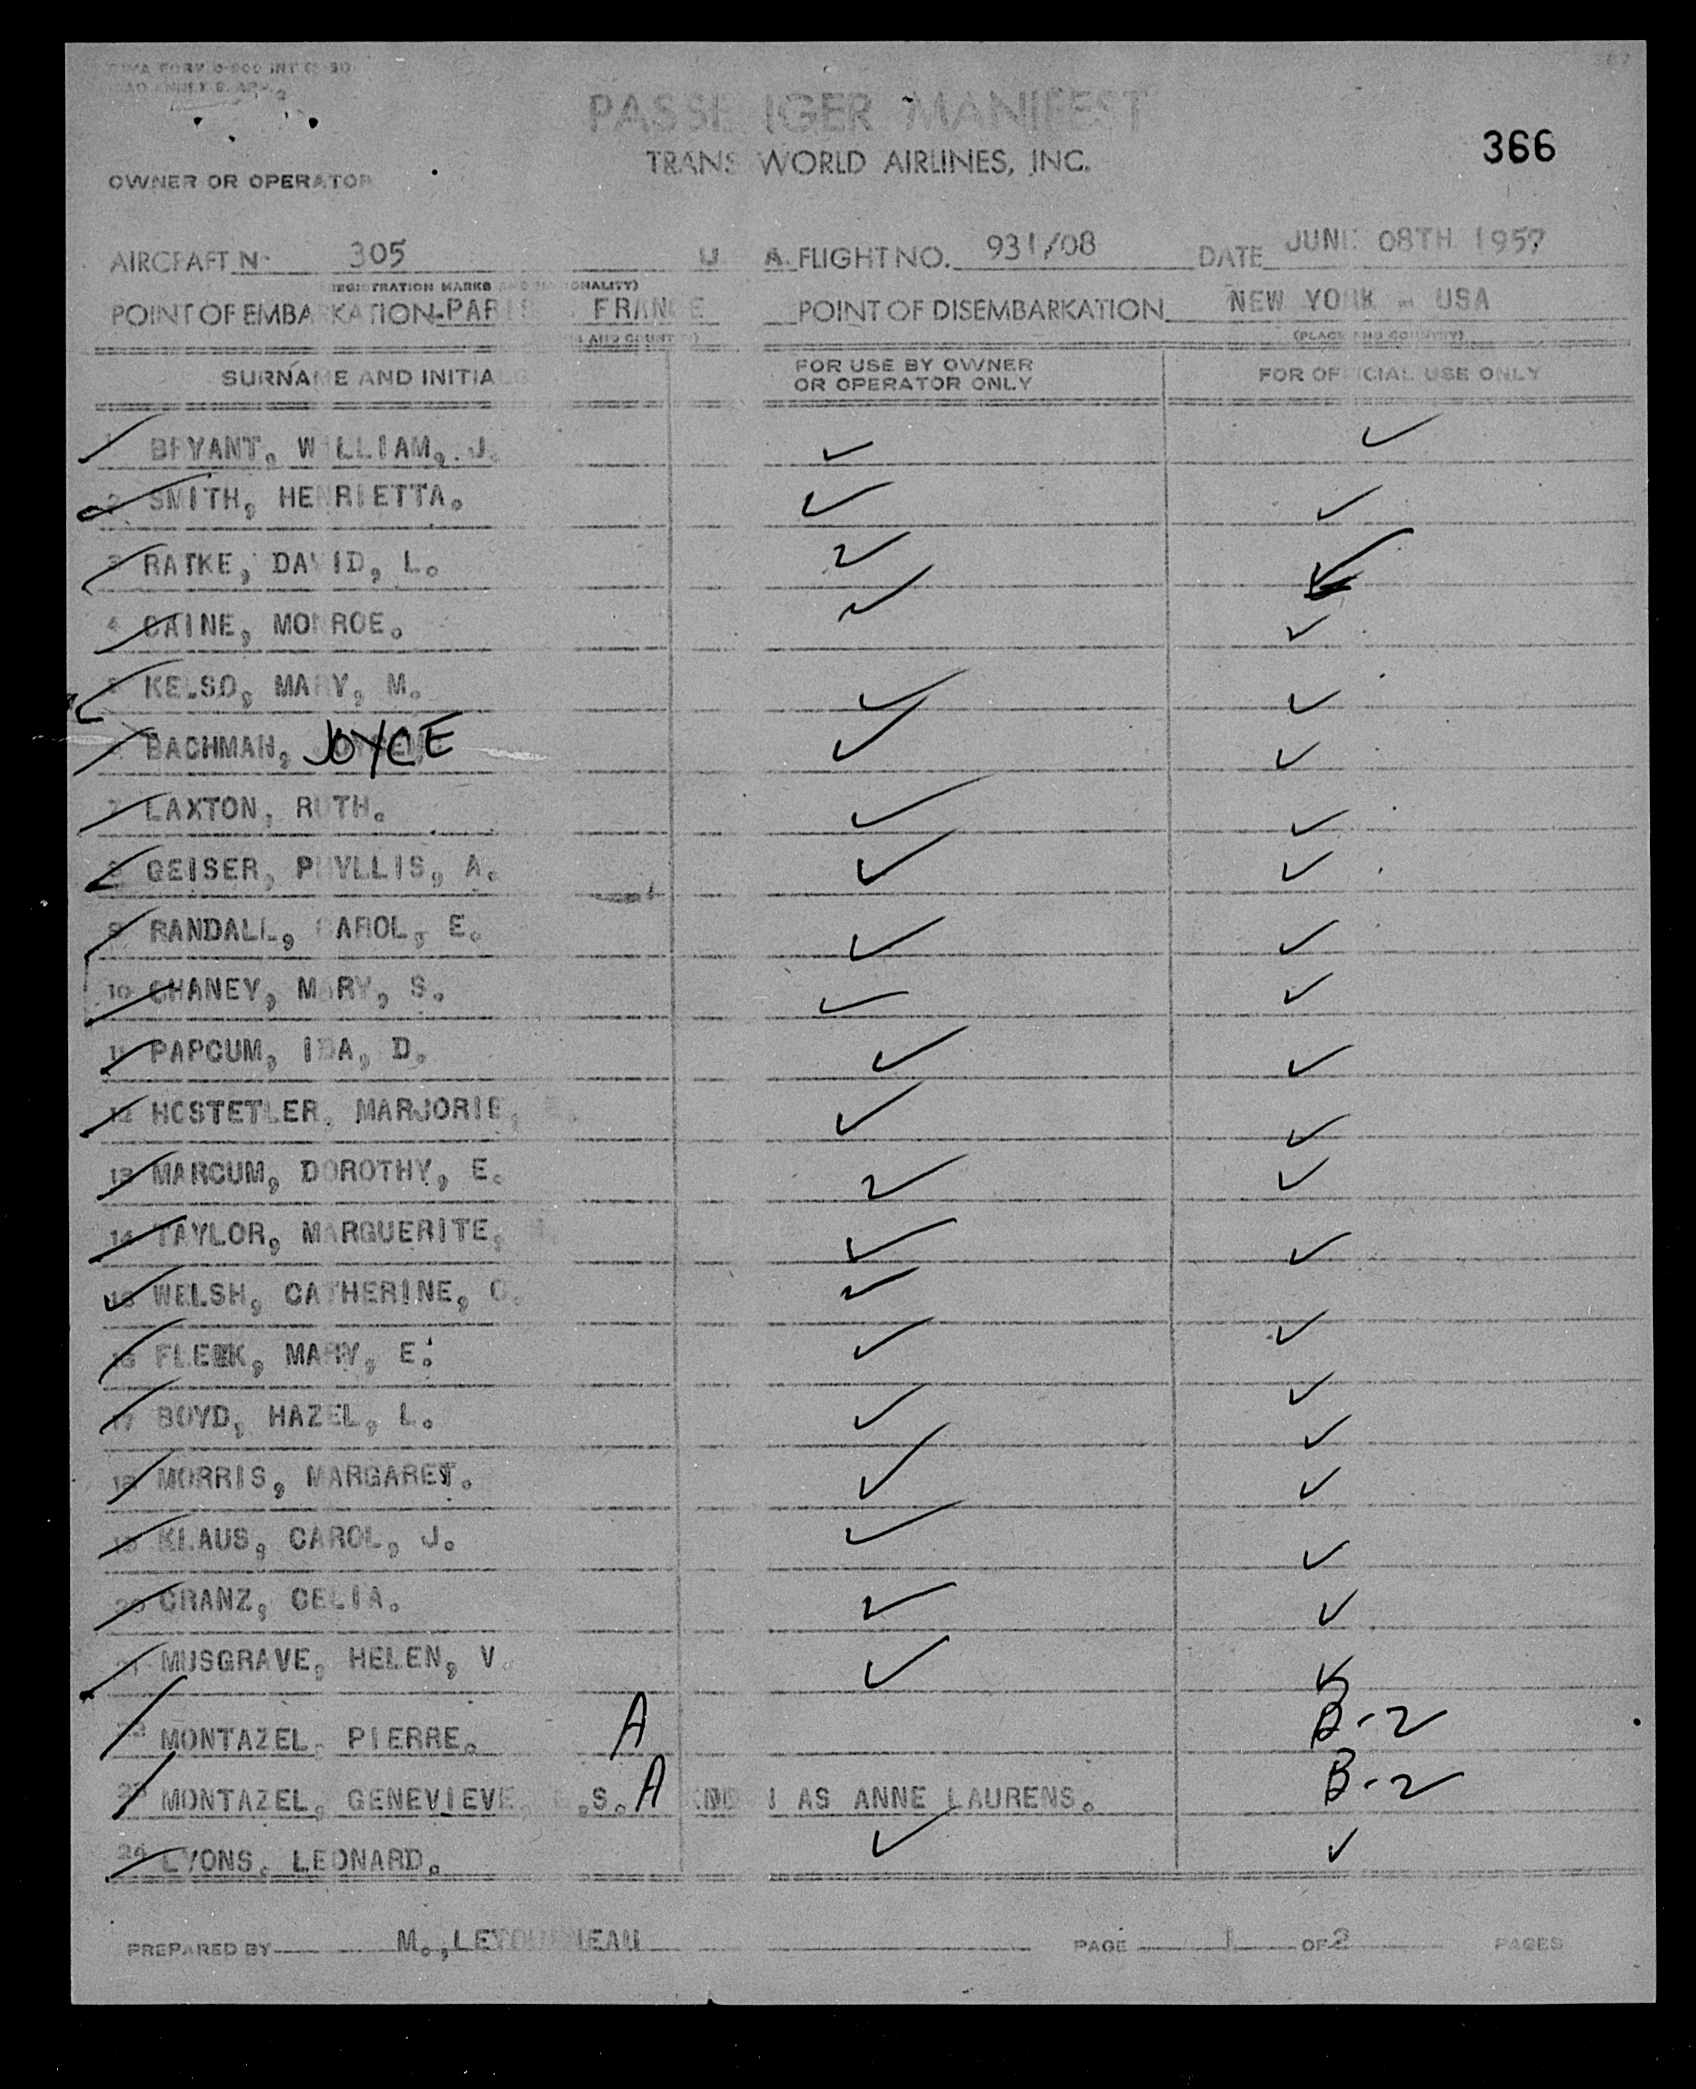 PASSENGER MANIFEST
TRANS WORLD AIRLINES, INC.
366
OWNER OR OPERATOR
AIRCRAFT No 305 U A. FLIGHT NO. 931/08 DATE JUNE 08TH 1957
(REGISTRATION MARKS AND NATIONALITY)
POINT OF EMBARKATION PARIS FRANCE POINT OF DISEMBARKATION NEW YORK - USA
(PLACE AND COUNTRY) (PLACE AND COUNTRY)
SURNAME AND INITIALS FOR USE BY OWNER OR OPERATOR ONLY FOR OFFICIAL USE ONLY
1 BRYANT, WILLIAM, J. ✓ ✓
2 SMITH, HENRIETTA. ✓ ✓
3 RATKE, DAVID, L. ✓ ✓
4 CAINE, MONROE. ✓ ✓
5 KELSO, MARY, M. ✓ ✓
6 BACHMAN, JOYCE ✓ ✓
7 LAXTON, RUTH. ✓ ✓
8 GEISER, PHYLLIS, A. ✓ ✓
9 RANDALL, CAROL, E. ✓ ✓
10 CHANEY, MARY, S. ✓ ✓
11 PAPCUM, IDA, D. ✓ ✓
12 HOSTETLER, MARJORIE, ✓ ✓
13 MARCUM, DOROTHY, E. ✓ ✓
14 TAYLOR, MARGUERITE, ✓ ✓
15 WELSH, CATHERINE, C. ✓
16 FLEEK, MARY, E. ✓ ✓
17 BOYD, HAZEL, L. ✓ ✓
18 MORRIS, MARGARET. ✓ ✓
19 KLAUS, CAROL, J. ✓ ✓
20 CRANZ, CELIA. ✓ ✓
21 MUSGRAVE, HELEN, V. ✓ ✓
22 MONTAZEL, PIERRE. A B-2
23 MONTAZEL, GENEVIEVE, .S. A KNOWN AS ANNE LAURENS. B-2
24 LYONS, LEONARD. ✓ ✓
PREPARED BY M., LETOURNEAU PAGE 1 OF 2 PAGES